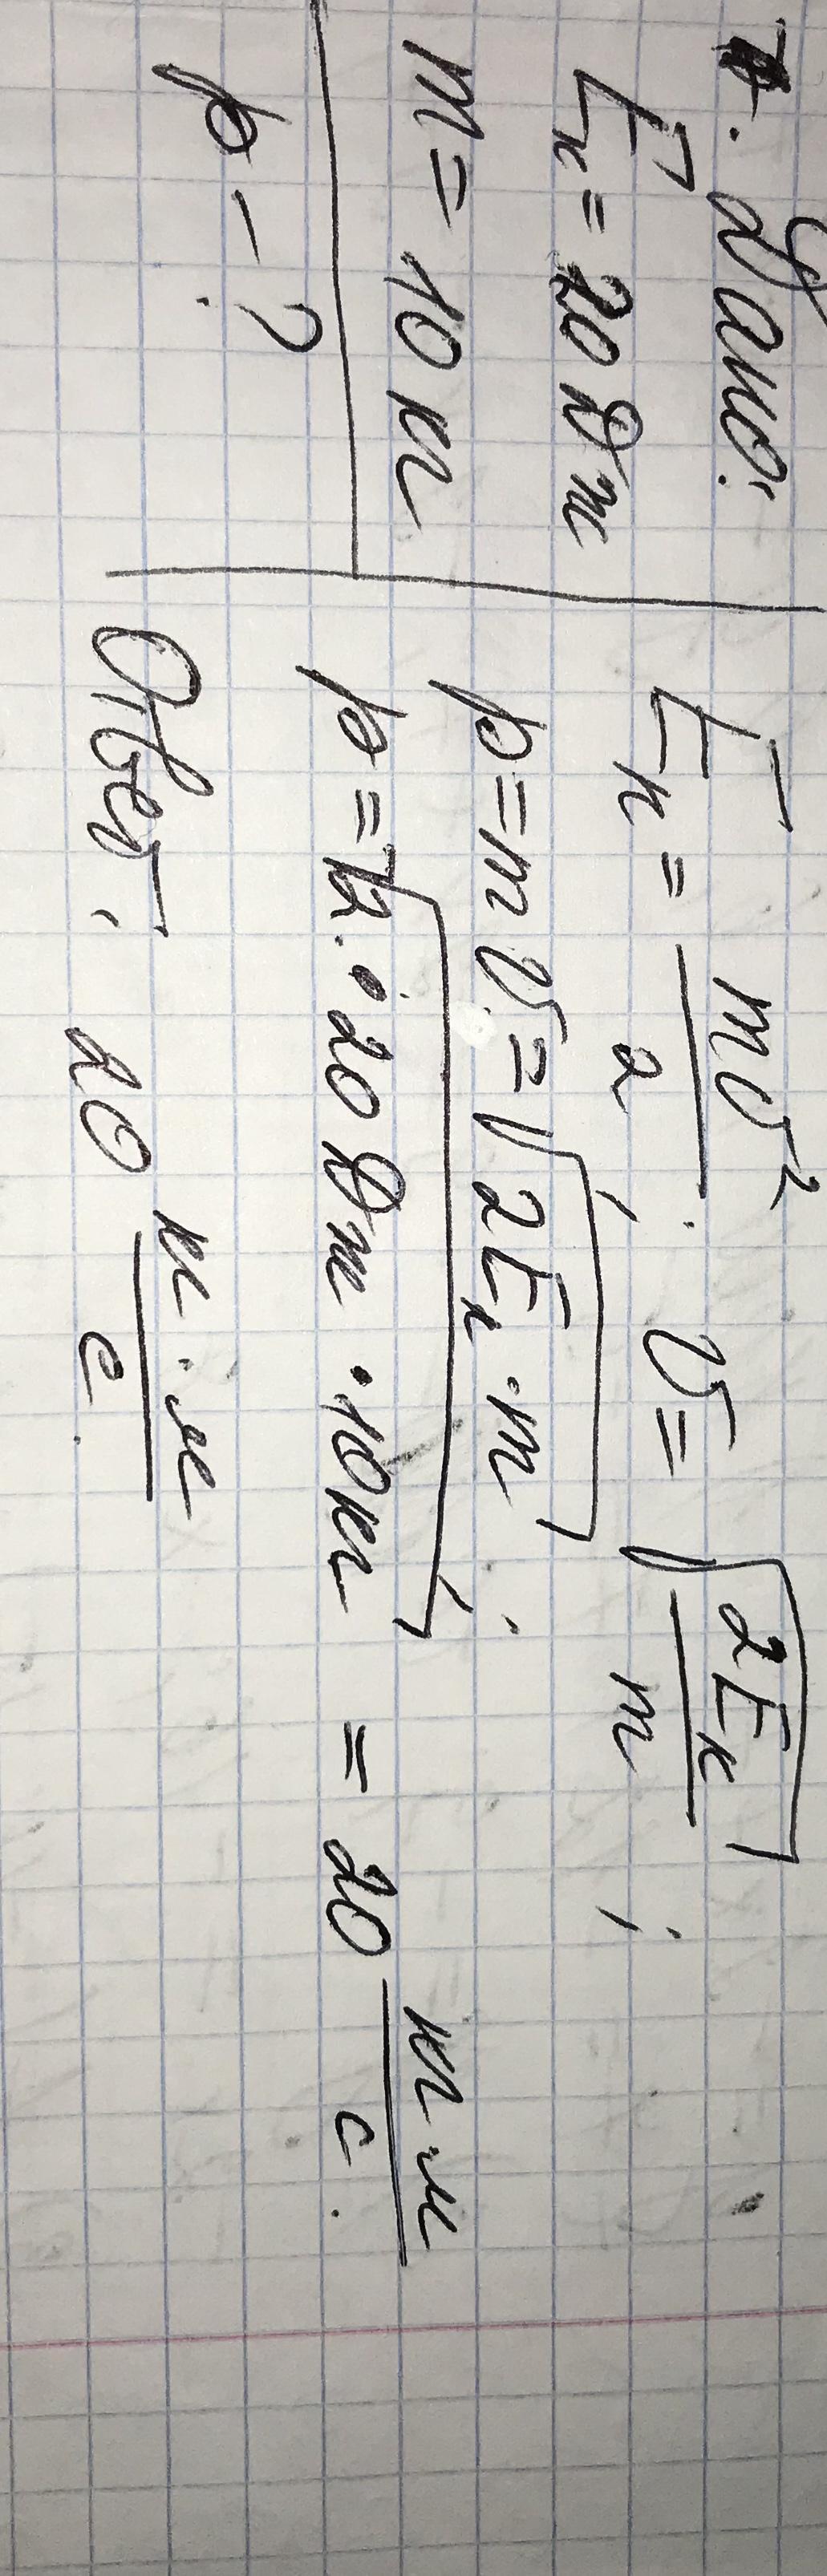 Дано:
Eк = 20 Дж
m = 10 кг
p - ?
Eк = mv²/2; v = √(2Eк/m);
p = mv = √(2Eк · m);
p = √(2 · 20 Дж · 10 кг) = 20 кг·м/с.
Ответ: 20 кг·м/с.